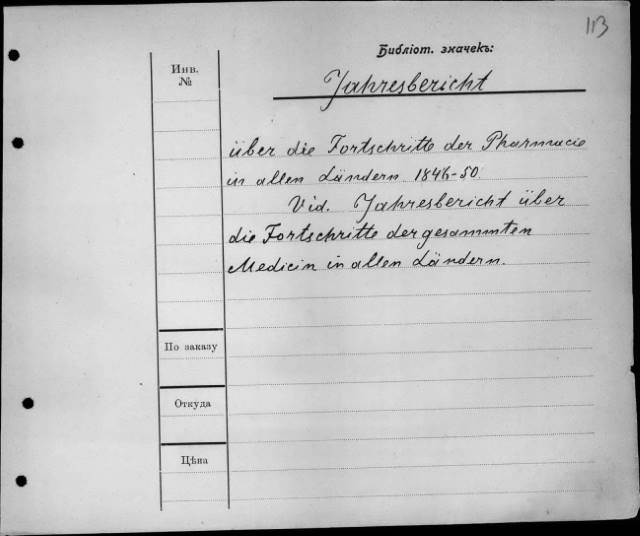 113
Библіот. значекъ:
Инв.
№
Jahresbericht
über die Fortschritte der Pharmacie
in allen Ländern 1846-50.
Vid. Jahresbericht über
die Fortschritte der gesammten
Medicin in allen Ländern.
По заказу
Откуда
Цѣна